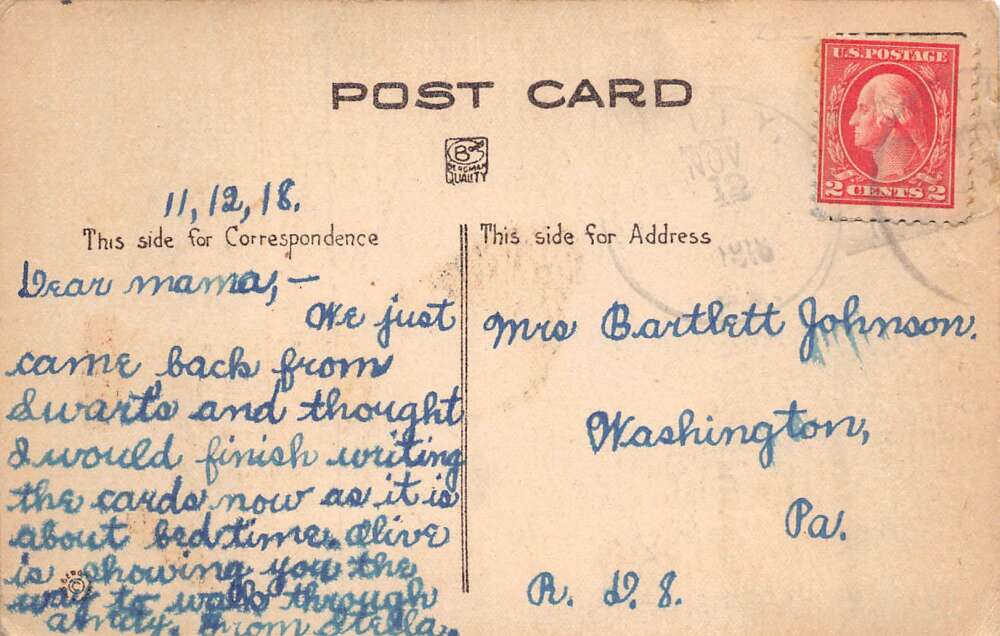 POST CARD
U.S. POSTAGE
2 CENTS 2
NOV
12
1918
BERGMAN
QUALITY
11, 12, 18.
This side for Correspondence
Dear mama, —
We just
came back from
Swart's and thought
I would finish writing
the cards now as it is
about bedtime. Olive
is showing you the
way to walk through
andy. From Stella.
This side for Address
Mrs Bartlett Johnson.
Washington,
Pa.
R. D. 8.